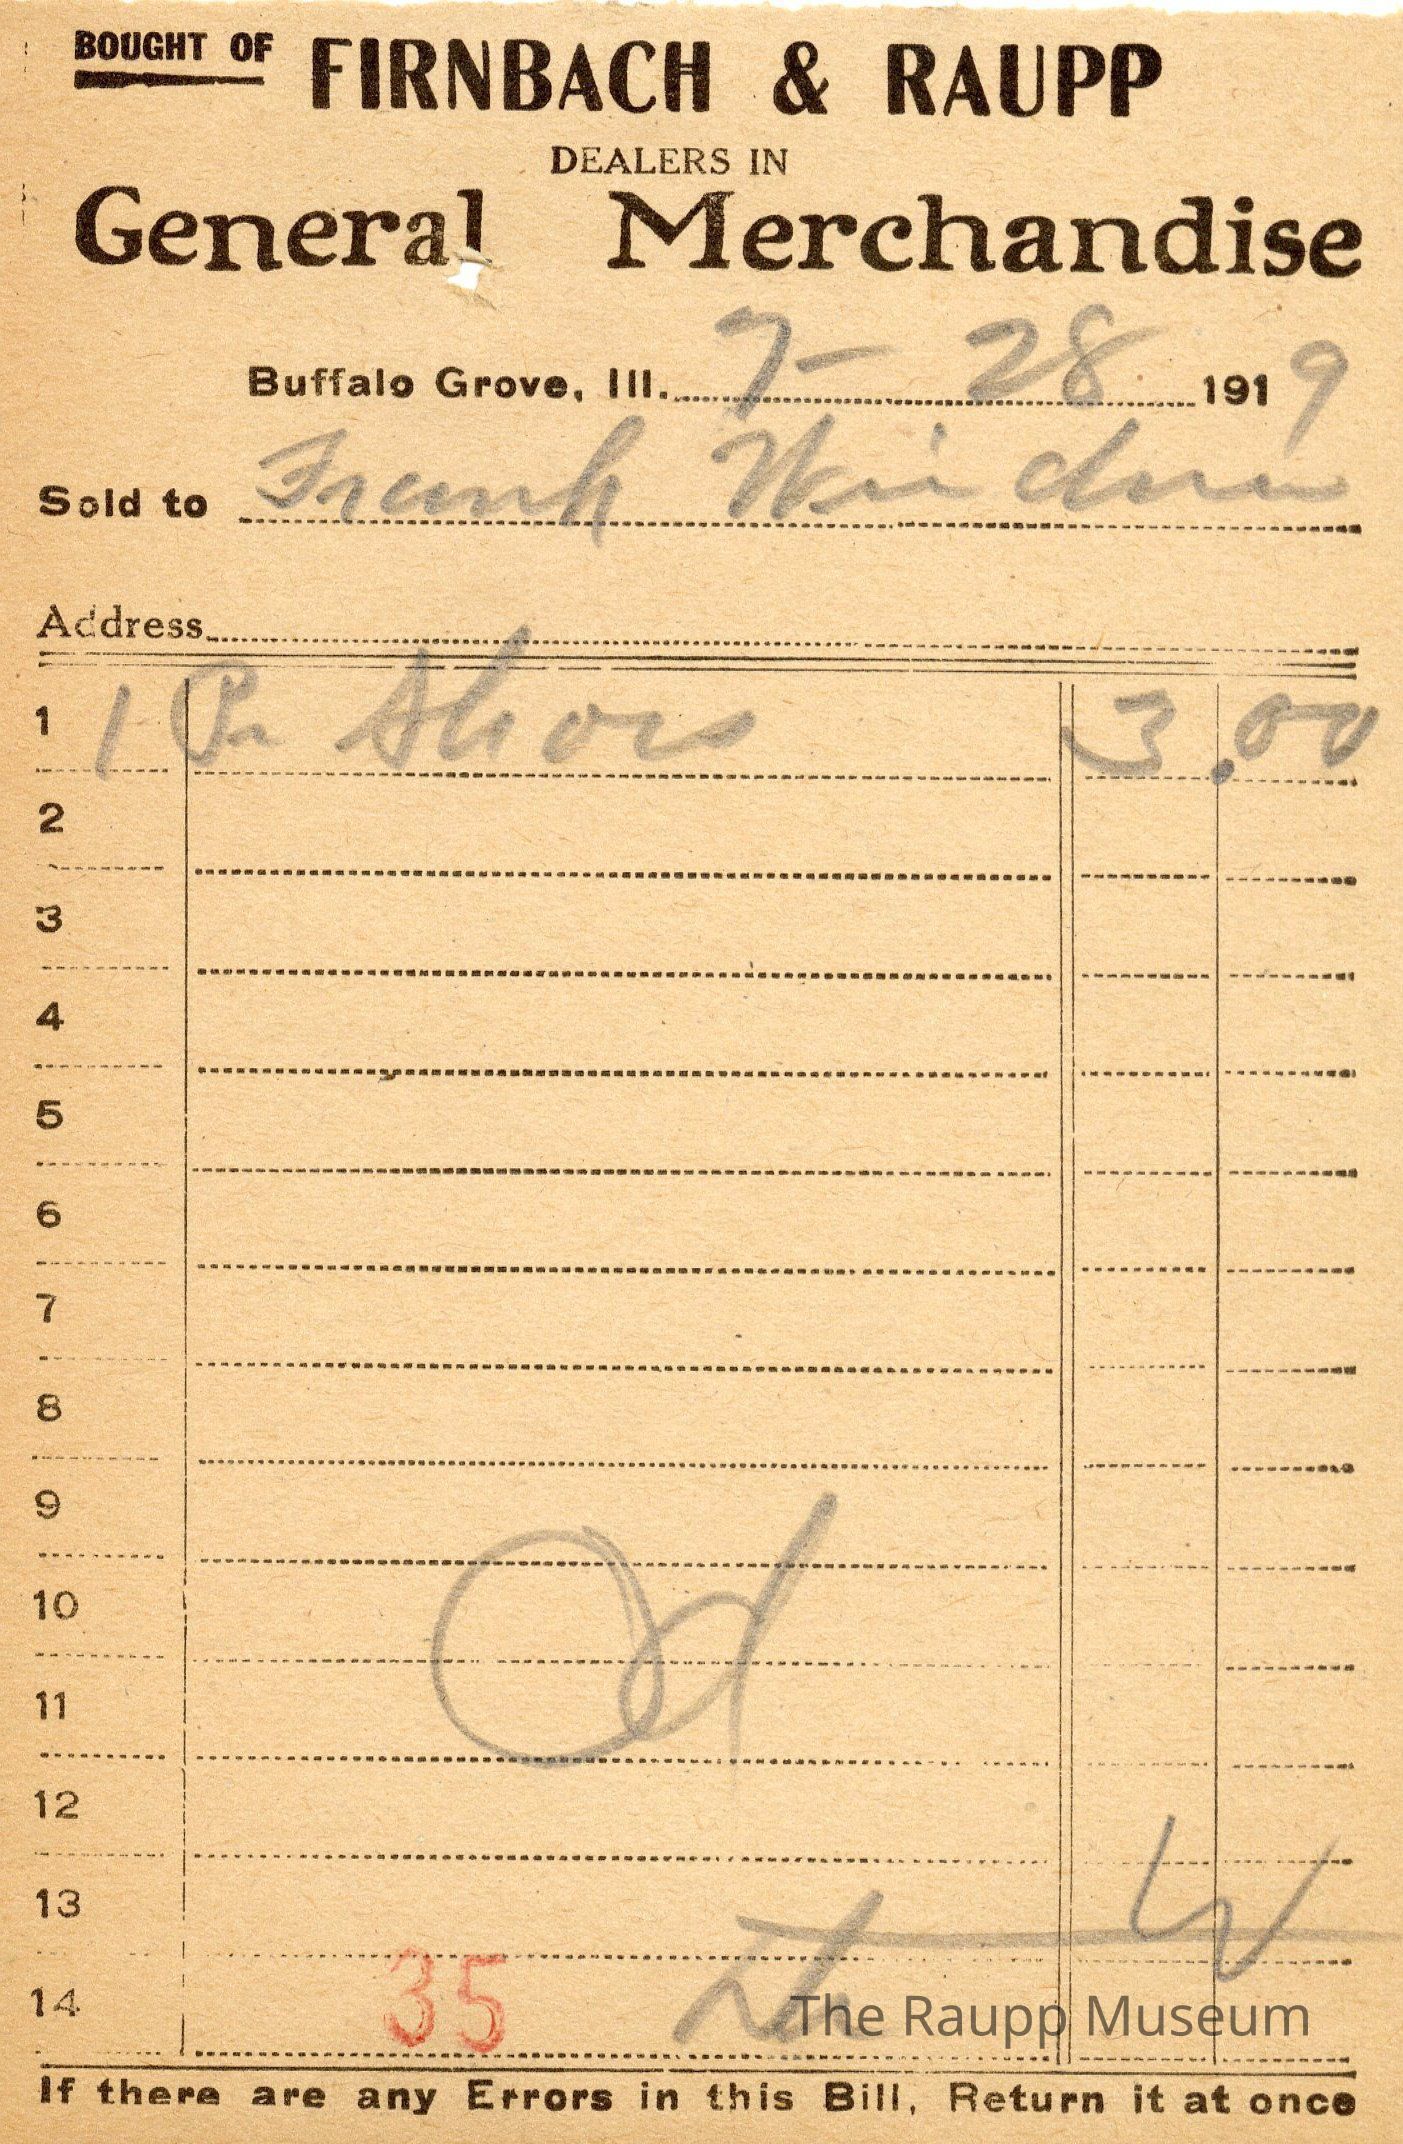 BOUGHT OF FIRNBACH & RAUPP
DEALERS IN
General Merchandise
Buffalo Grove, Ill. 7-28 1919
Sold to Frank
Address
1 1 Pr Shoes 3.00
2
3
4
5
6
7
8
9
10
11
12
13
14 35
The Raupp Museum
If there are any Errors in this Bill, Return it at once